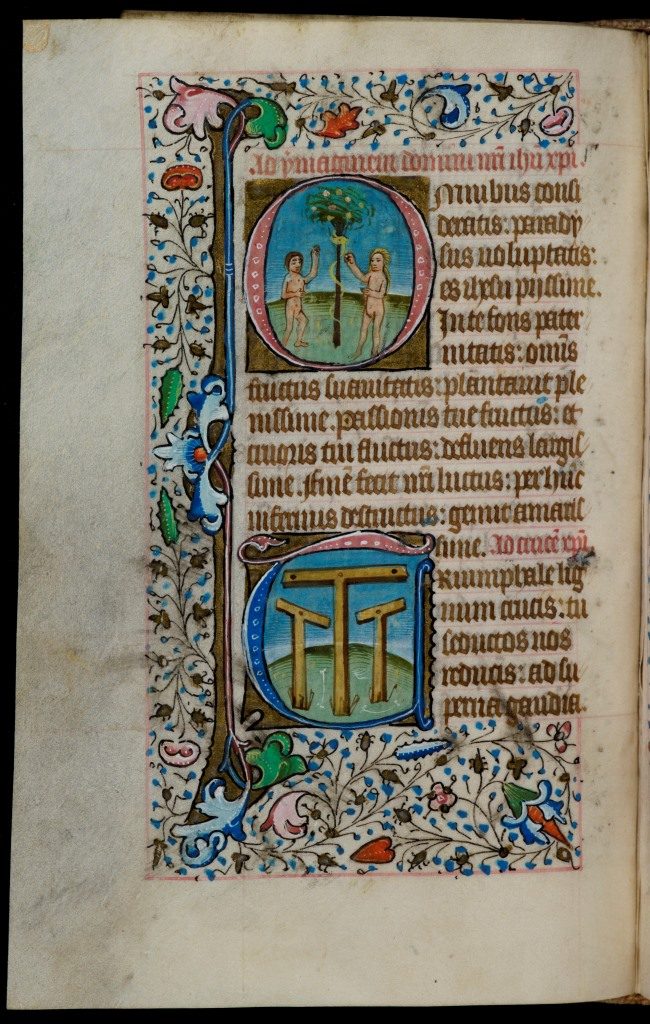 Ad ymitationem domini nr̄i ihū xp̄i.
Omnibus consi
deratis: parady
sus uoluptatis:
es ihesu piissime.
In te fons pater
nitatis: omīs
fructus suauitatis: plantauit ple
nissime. passionis tue fructus: et
crucis tui fluctus: defluens largis
sime. Finē fecit nr̄i luctus: per hūc
infernus destructus: gemit amaris
sime. Ad crucē xp̄i
Triumphale lig
num crucis: tu
seductos nos
reducis: ad su
perna gaudia.